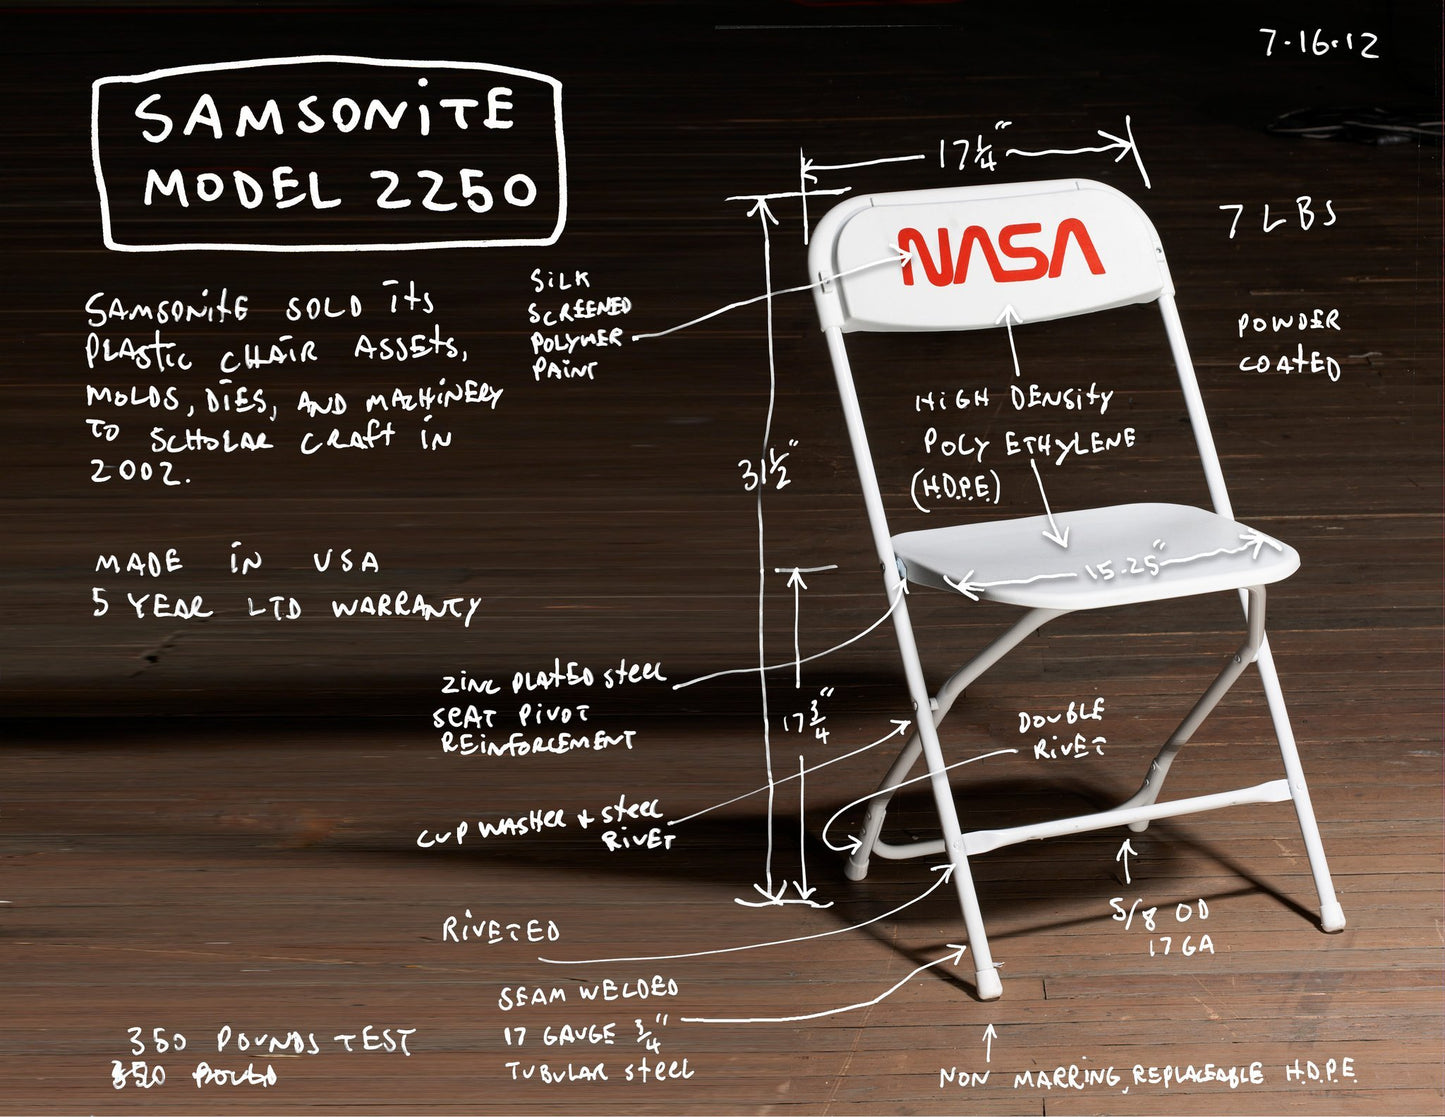 7·16·12
SAMSONiTE
MODEL 2250
17 1/4"
NASA
7 LBS
SAMSONitE SOLD itS
PLAStic CHAIR ASSEtS,
MOLDS, DIES, AND MACHiNERY
TO SCHOLAR CRAft iN
2002.
SiLK
SCREENED
POLYMER
PAiNt
POWDER
COAtED
HiGH DENSity
POLY ETHYLENE
(H.D.P.E.)
31 1/2"
15.25"
MADE iN USA
5 YEAR LTD WARRANTY
ZiNC PLAtED Steel
SEAT PiVOT
REiNFORCEMENT
17 3/4"
DOUBLE
RiVET
CUP WASHER + Steel
RiVET
RiVETED
5/8 OD
17 GA
SEAM WELDED
17 GAUGE 3/4"
TUBULAR Steel
350 POUNDS TEST
NON MARRING, REPLACEABLE H.D.P.E.